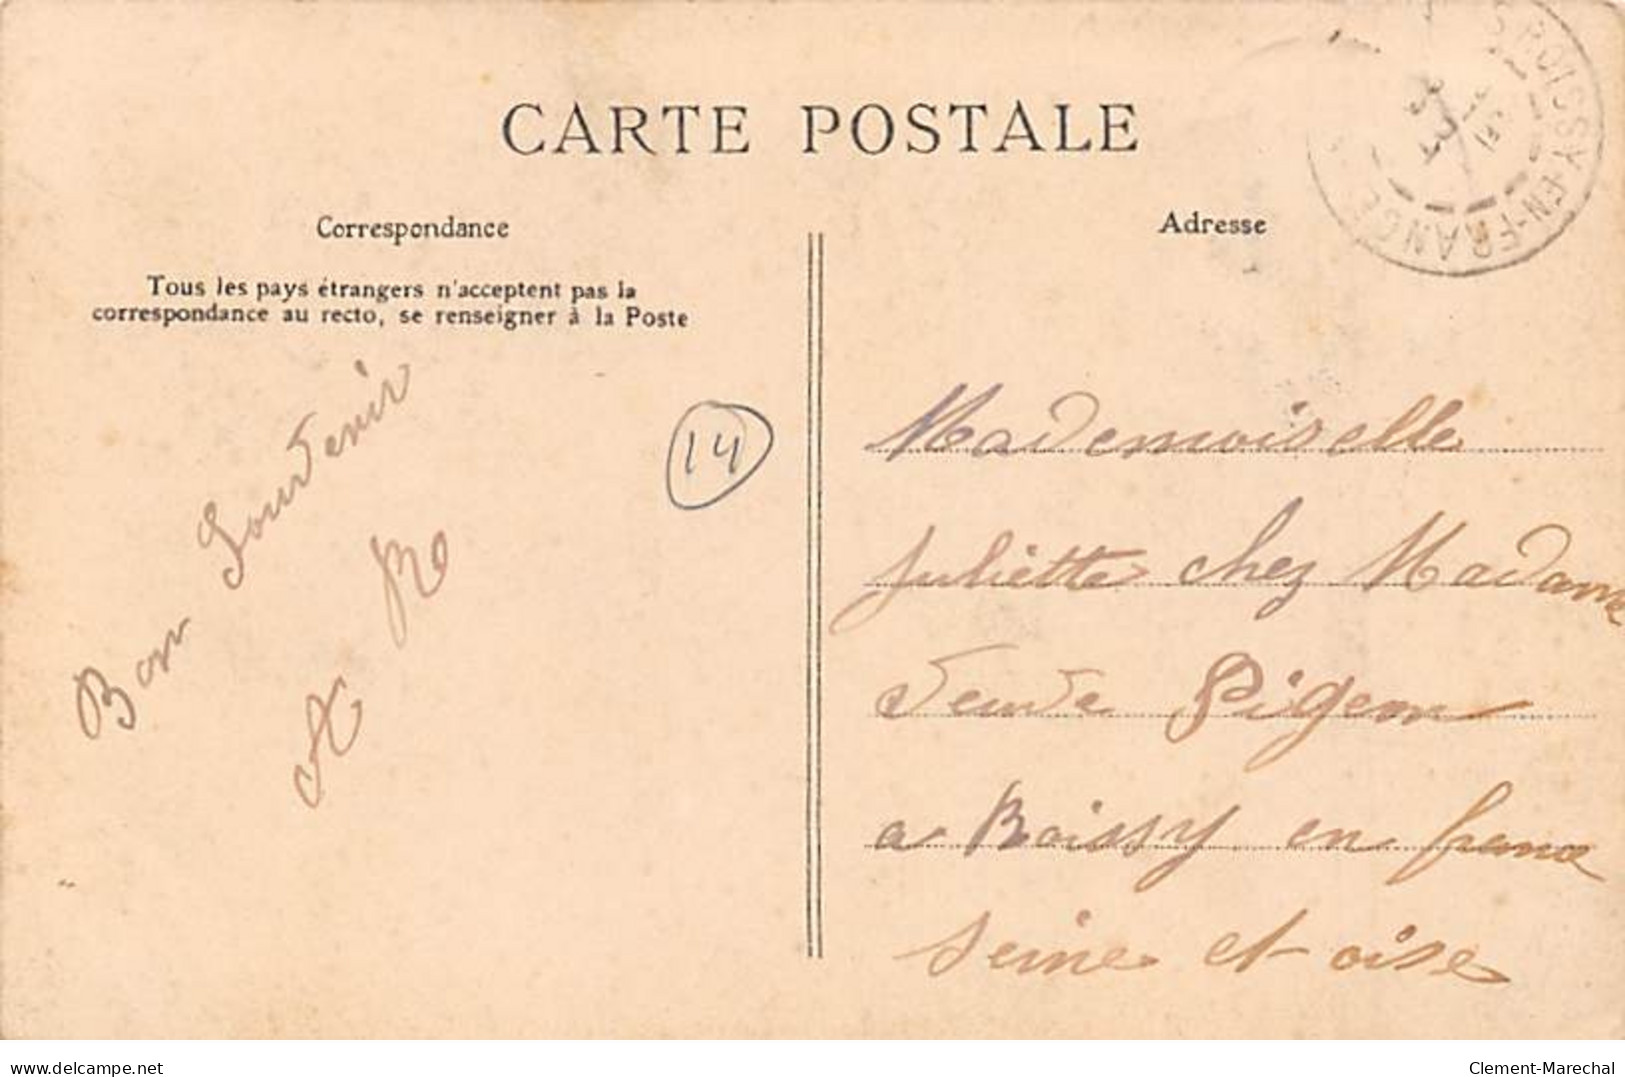 CARTE POSTALE
ROISSY-EN-FRANCE
Correspondance
Adresse
Tous les pays étrangers n'acceptent pas la
correspondance au recto, se renseigner à la Poste
Bon Souvenir
A R
14
Mademoiselle
Juliette chez Madame
veuve Pigeon
a Roissy en france
seine et oise
www.delcampe.net
Clement-Marechal